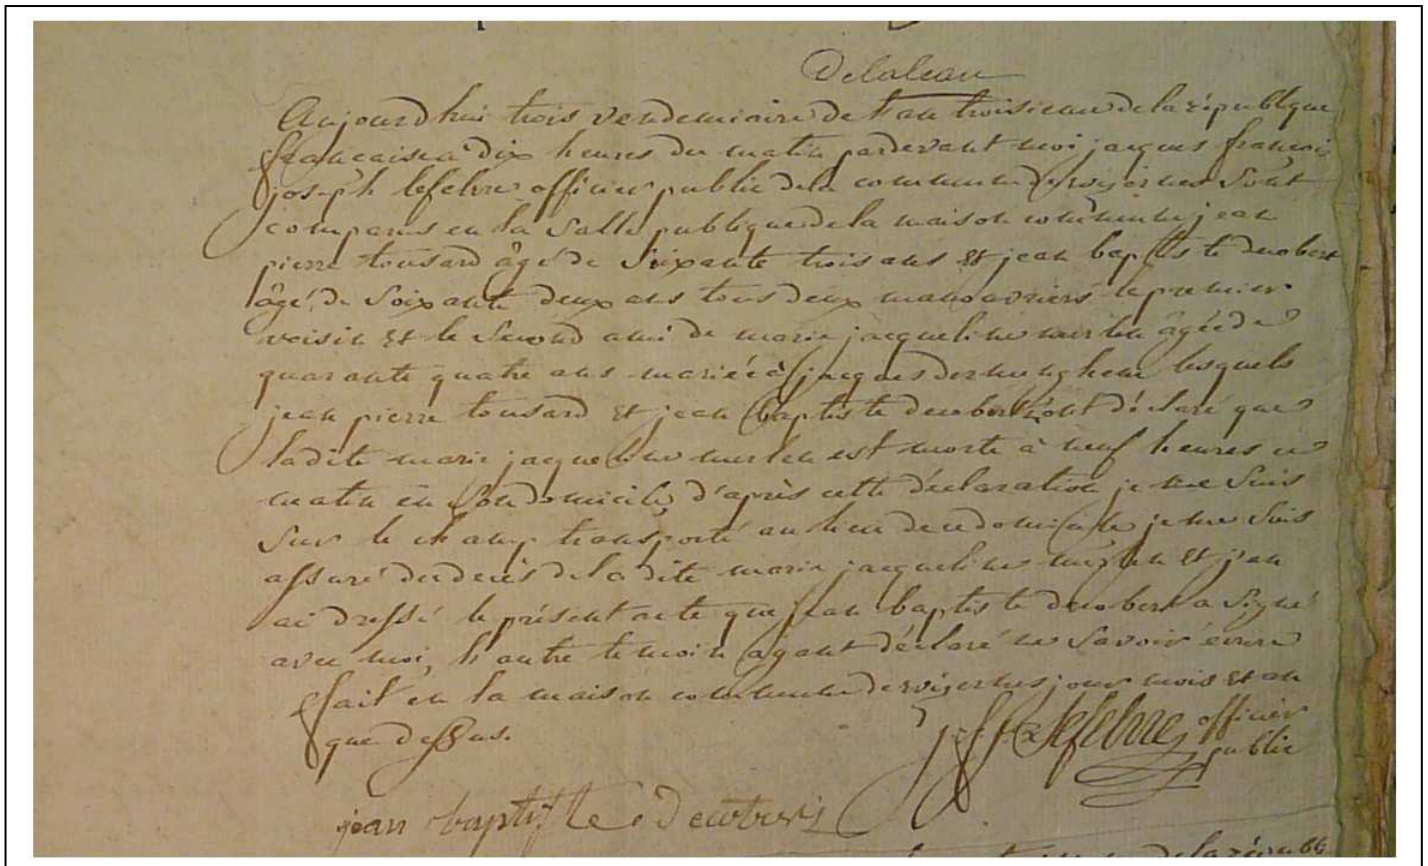 Delaleau
Aujourd'hui trois vendemiaire de l'an troisieme de la république
francaise à dix heures du matin pardevant moi jacques francois
joseph lefebvre officier public dela commune de wizernes sont
comparus en la salle publique dela maison commune jean
pierre tousard âgé de soixante trois ans et jean baptiste decobert
âgé de soixante deux ans tous deux manouvriers le premier
voisin et le second ami de marie jacqueline merlen âgée de
quarante quatre ans mariée à jacques dezmunghem lesquels
jean pierre tousard et jean baptiste decobert m'ont déclaré que
ladite marie jacqueline merlen est morte à neuf heures ce
matin en son domicile, d'après cette déclaration je me suis
sur le champ transporté au lieu de ce domicile je me suis
assuré du decès dela dite marie jacqueline merlen et j'en
ai dressé le présent acte que jean baptiste decobert a signé
avec moi, l'autre temoin ayant déclaré ne savoir écrire
fait en la maison commune de wizernes jour mois et an
que dessus.
j f j Lefebvre officier
public
jean baptiste
dela républi